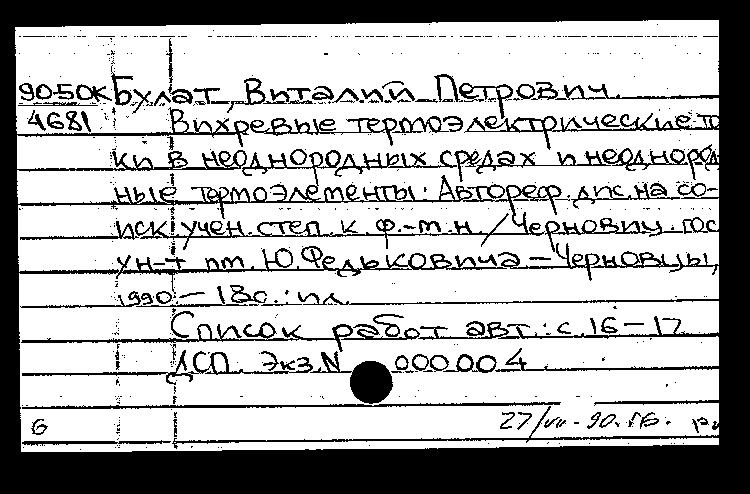 90-50К Булат, Виталий Петрович.
4681 Вихревые термоэлектрические то
ки в неоднородных средах и неоднород
ные термоэлементы: Автореф. дис. на со-
иск. учен. степ. к. ф.-т. н. / Черновиц. гос
ун-т им. Ю. Федьковича – Черновцы,
1990 – 18с.: ил.
Список работ авт.: с. 16–17
ДСП. Экз. N 000004
6 27/VII-90.